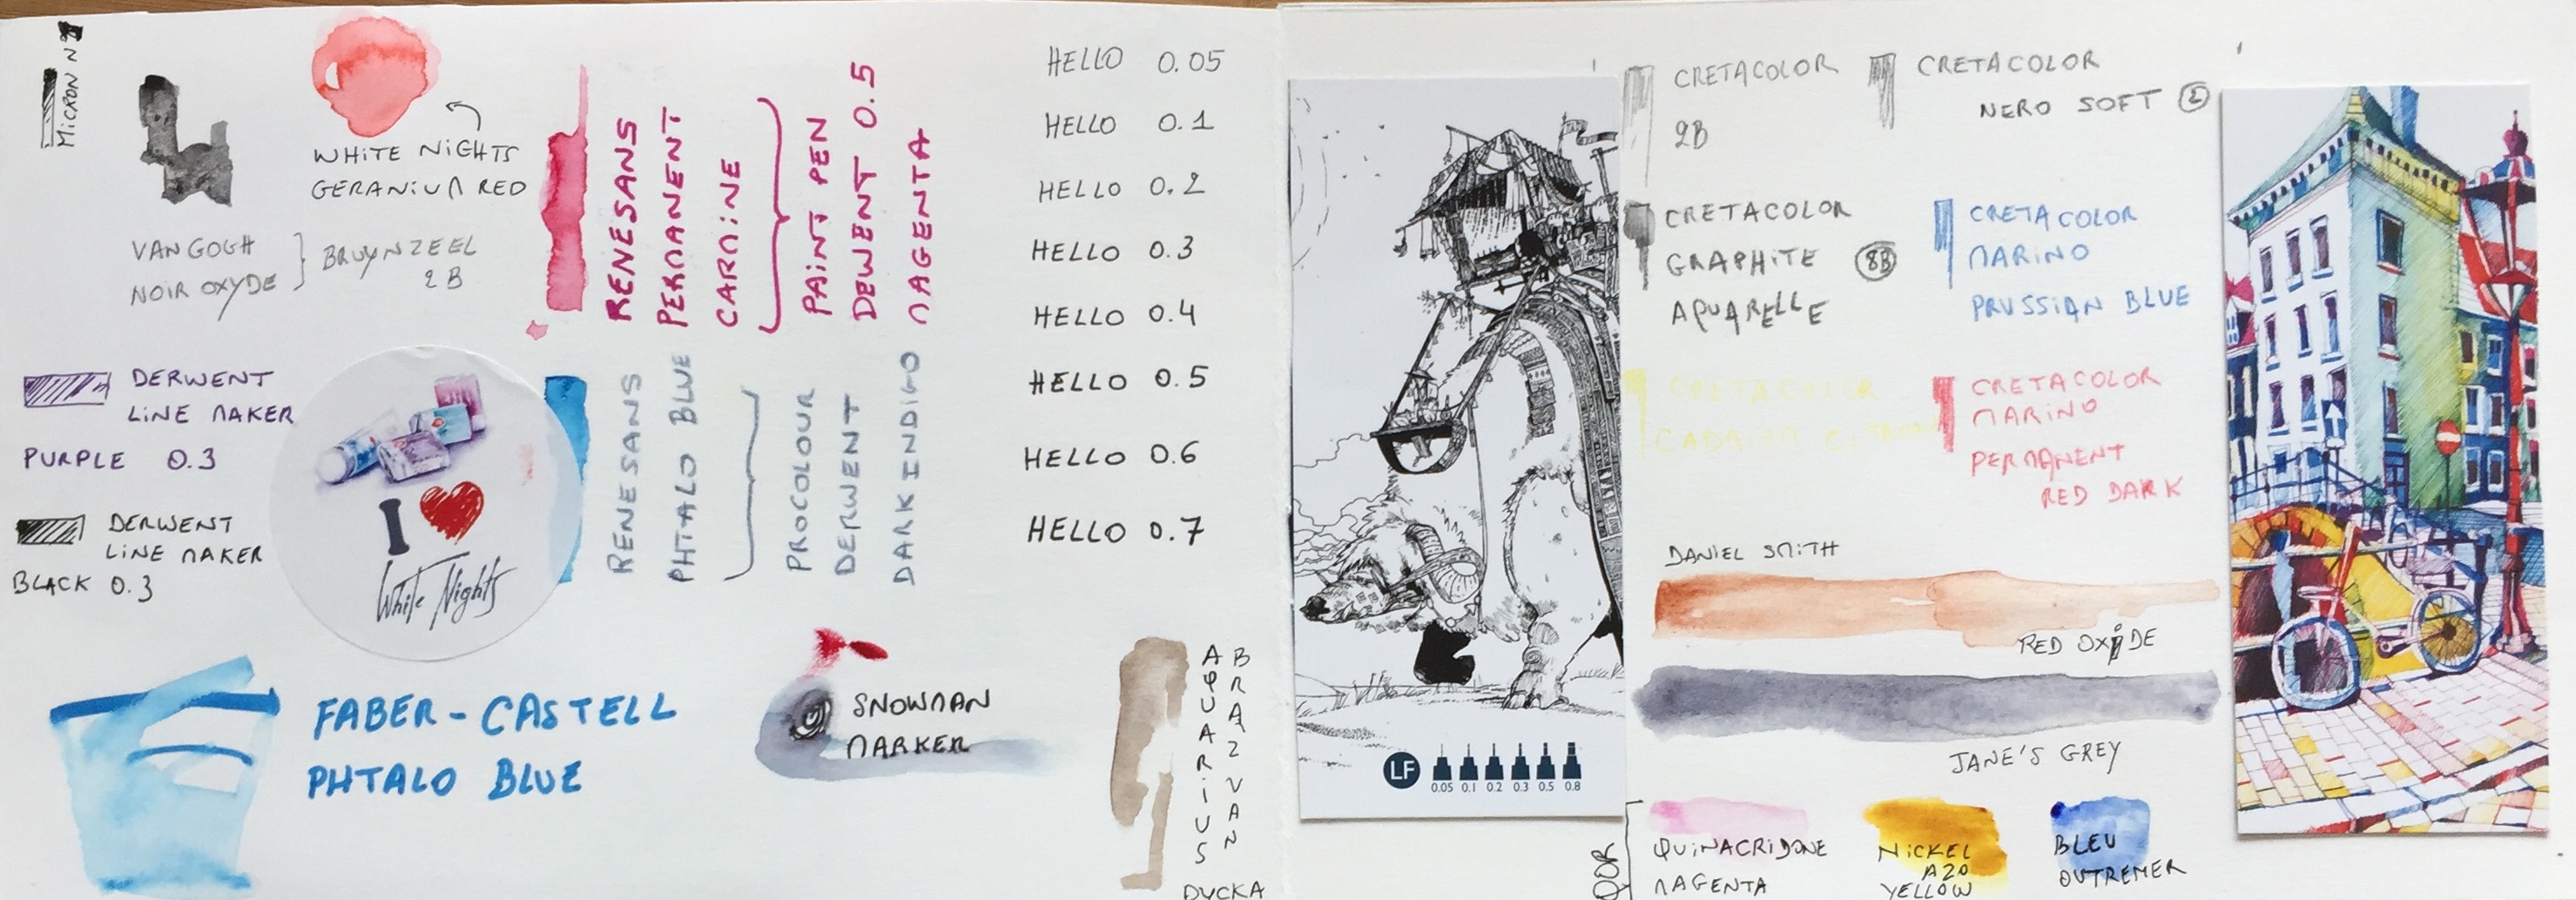 MICRON N
WHITE NIGHTS
GERANIUM RED
VAN GOGH
NOIR OXYDE
BRUYNZEEL
2B
RENESANS
PERMANENT
CARMINE
PAINT PEN
DEWENT 0.5
MAGENTA
HELLO 0.05
HELLO 0.1
HELLO 0.2
HELLO 0.3
HELLO 0.4
HELLO 0.5
HELLO 0.6
HELLO 0.7
DERWENT
LINE MAKER
PURPLE 0.3
DERWENT
LINE MAKER
BLACK 0.3
I
White Nights
RENESANS
PHTALO BLUE
PROCOLOUR
DERWENT
DARK INDIGO
FABER-CASTELL
PHTALO BLUE
SNOWMAN
MARKER
AQUARIUS
BRAZ VAN
DYCKA
LF
0.05 0.1 0.2 0.3 0.5 0.8
CRETACOLOR
2B
CRETACOLOR
NERO SOFT 2
CRETACOLOR
GRAPHITE 8B
AQUARELLE
CRETACOLOR
MARINO
PRUSSIAN BLUE
CRETACOLOR
CRETACOLOR
MARINO
PERMANENT
RED DARK
DANIEL SMITH
RED OXIDE
JANE'S GREY
QOR
QUINACRIDONE
MAGENTA
NICKEL
AZO
YELLOW
BLEU
OUTREMER